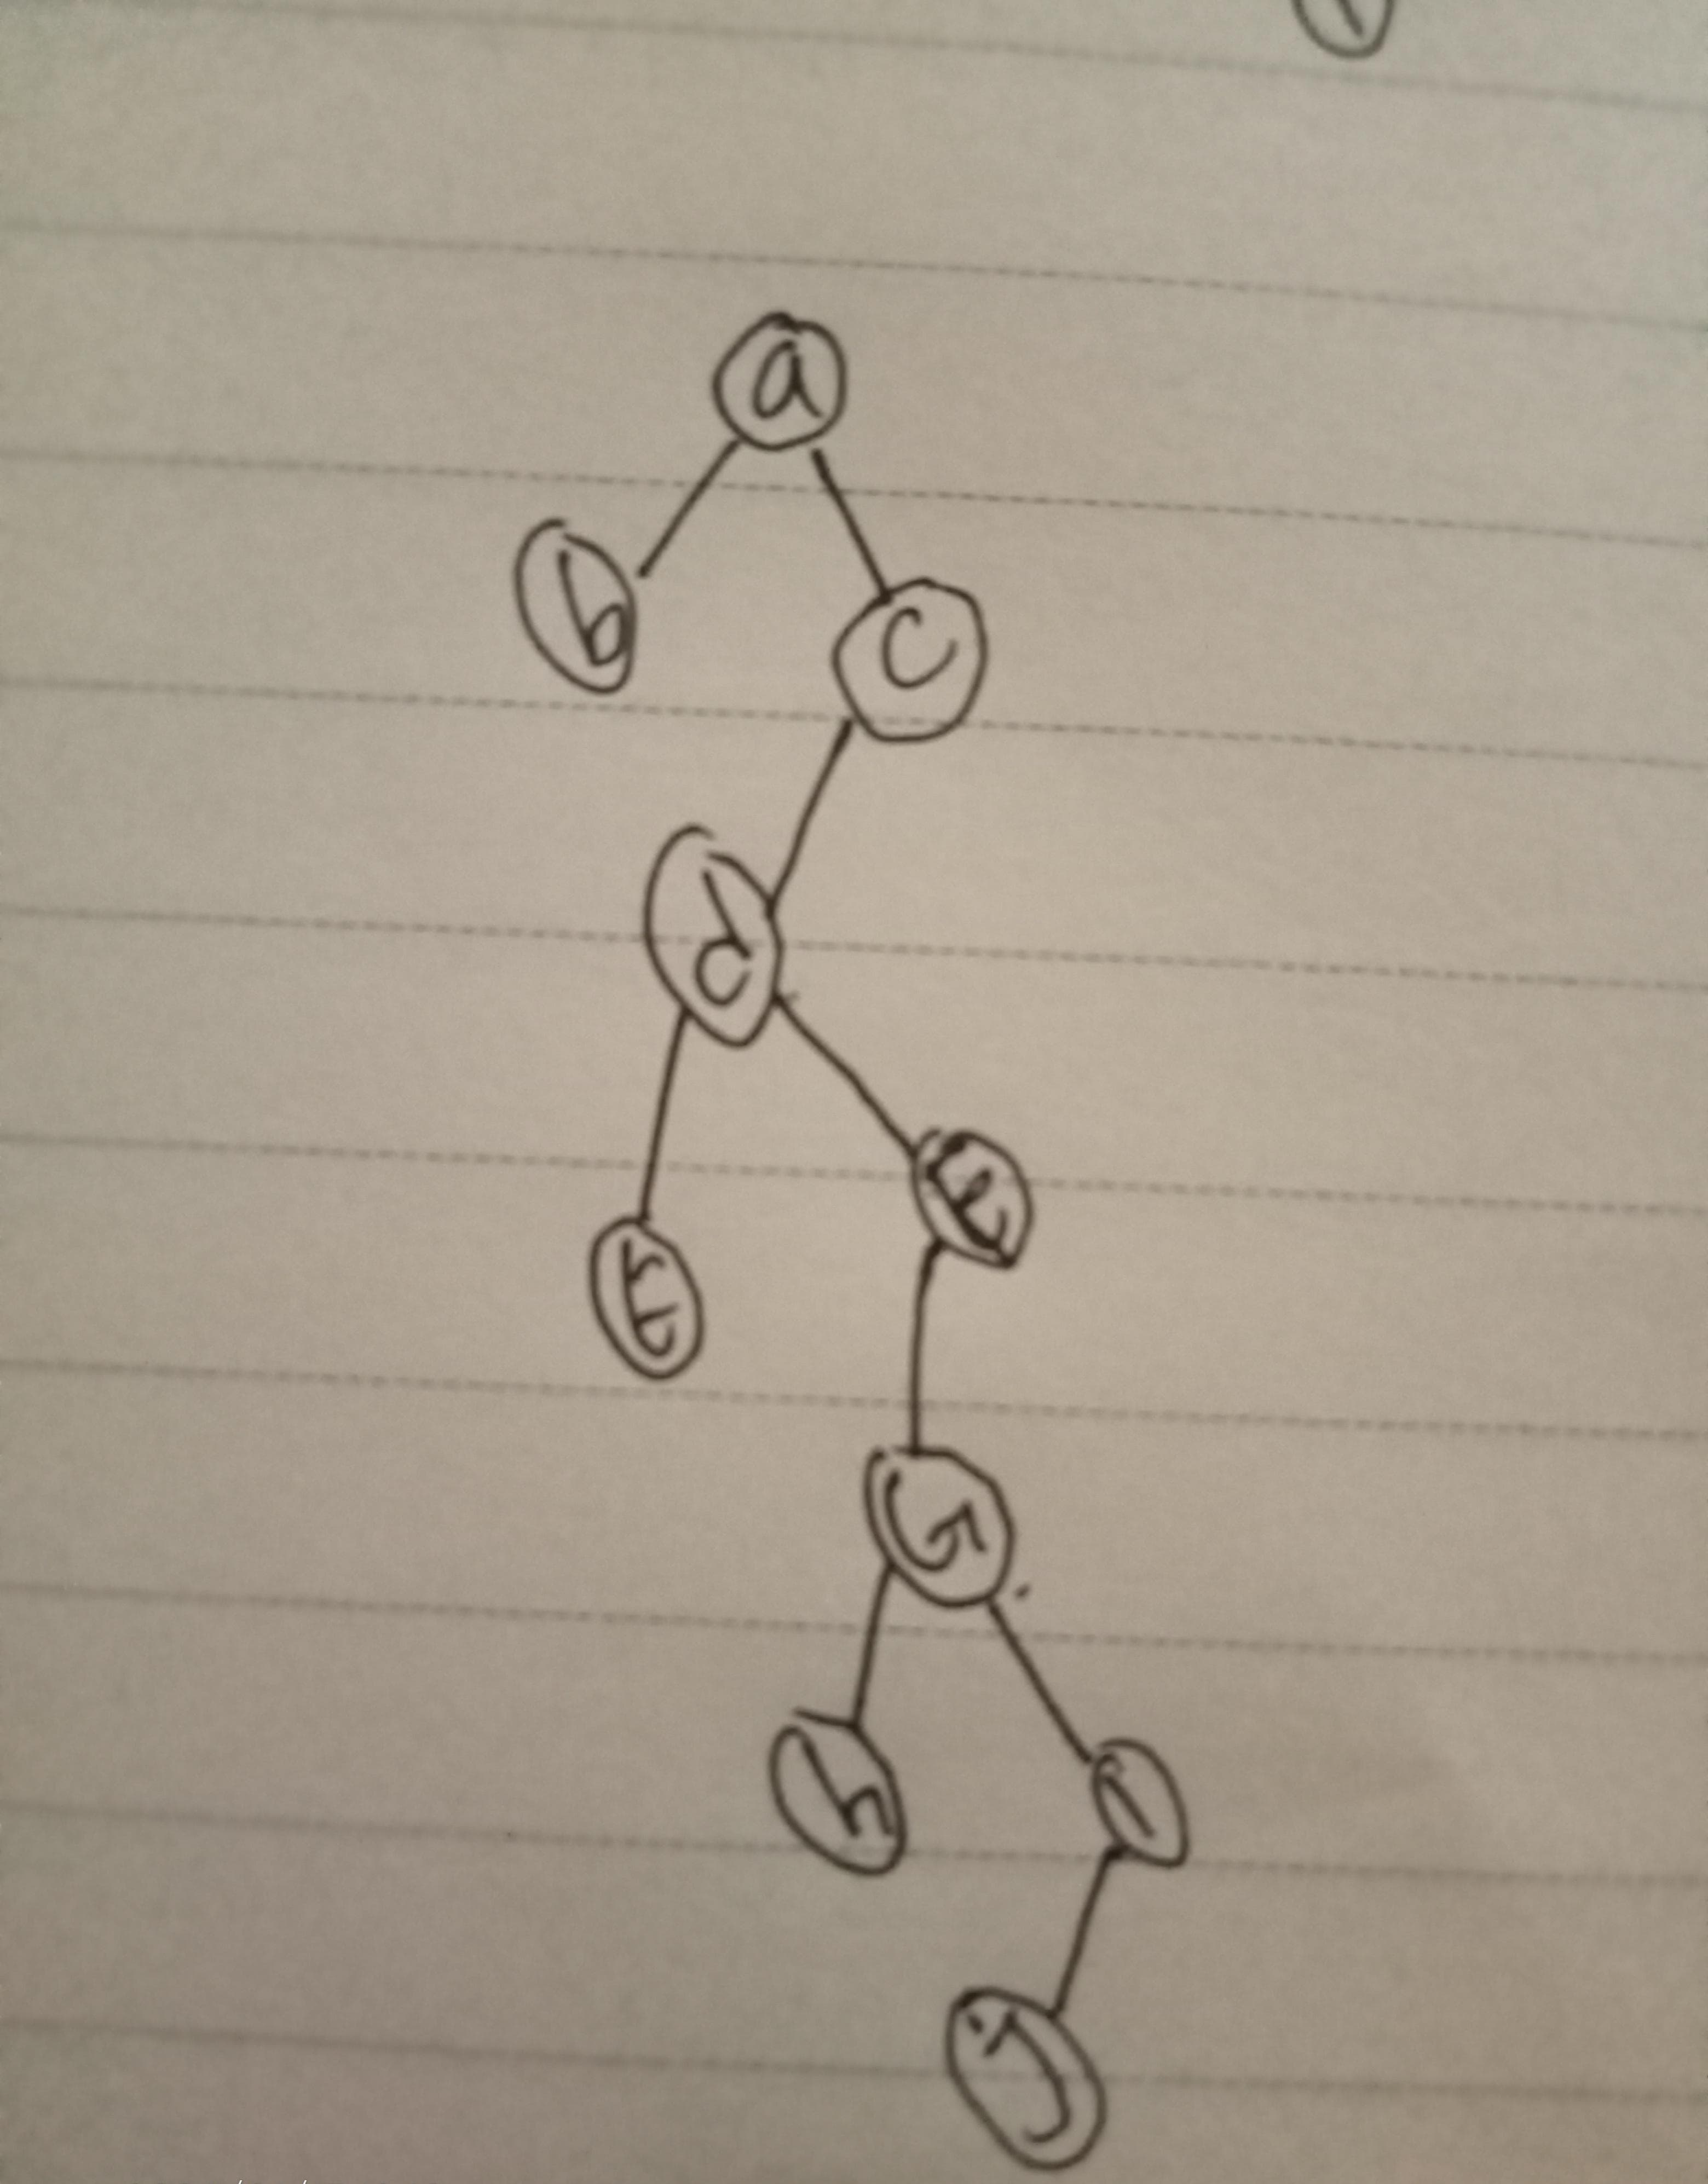 a
b c
d
e
G
h i
j